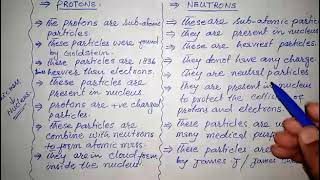 PROTONS:
NEUTRONS
⇒ the protons are sub-atomic
particles.
⇒ these particles were found
by Goldstein.
⇒ these particles are 1836
heavier then electrons.
⇒ these particles are
present in nucleus
⇒ protons are +ve charged
particles.
⇒ these particles
combine with neutrons
to form atomic mass.
⇒ they are in cloud form
inside the nucleus.
⇒ these are sub-atomic
⇒ they are present in nucleus
⇒ these are heaviest particles.
⇒ they donot have any charge.
⇒ they are neutral particles
⇒ they are present in nucleus
to protect the
of
protons and electrons.
⇒ these particles are
many medical
⇒ these particles
by James